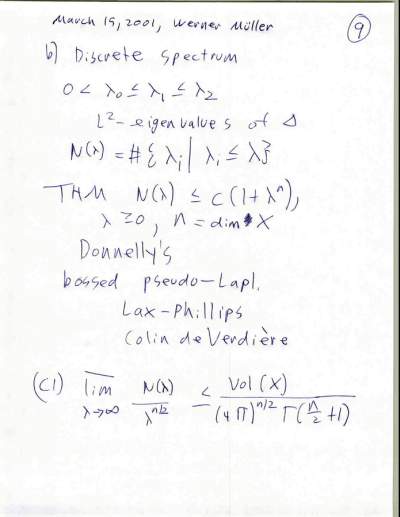 March 15, 2001, Werner Müller
9
b) Discrete spectrum
0 < λ₀ ≤ λ₁ ≤ λ₂
L²-eigenvalues of Δ
N(λ) = #{λⱼ | λᵢ ≤ λ}
THM N(λ) ≤ C(1+λⁿ),
λ ≥ 0, n = dim X
Donnelly's
bossed pseudo-Lapl.
Lax-Phillips
Colin de Verdière
(C1) lim̅ λ→∞ N(λ)/λ^{n/2} ≤ Vol(X)/((4π)^{n/2} Γ(n/2 +1))